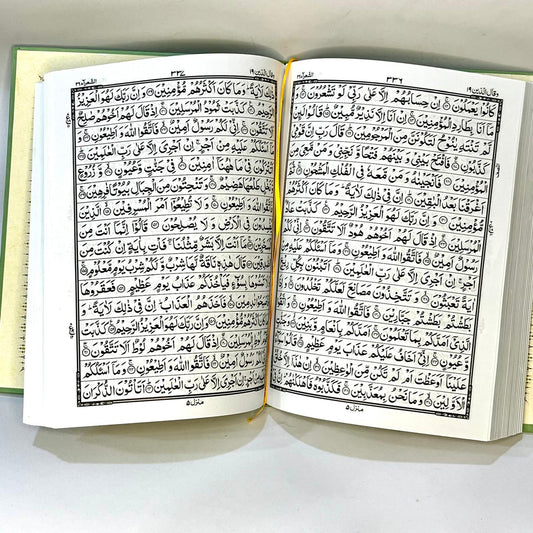 وقال الذین ۱۹
۳۳۶
الشعرآء ۲۶
كَانُوْا يَعْمَلُوْنَ ۝ اِنْ حِسَابُهُمْ اِلَّا عَلٰى رَبِّيْ لَوْ تَشْعُرُوْنَ ۝ وَ
مَاۤ اَنَا بِطَارِدِ الْمُؤْمِنِيْنَ ۝ اِنْ اَنَا اِلَّا نَذِيْرٌ مُّبِيْنٌ ۝ قَالُوْا لَىِٕنْ
لَّمْ تَنْتَهِ يٰنُوْحُ لَتَكُوْنَنَّ مِنَ الْمَرْجُوْمِيْنَ ۝ قَالَ رَبِّ اِنَّ قَوْمِيْ
كَذَّبُوْنِ ۝ فَافْتَحْ بَيْنِيْ وَ بَيْنَهُمْ فَتْحًا وَّ نَجِّنِيْ وَ مَنْ مَّعِيَ مِنَ
الْمُؤْمِنِيْنَ ۝ فَاَنْجَيْنٰهُ وَ مَنْ مَّعَهٗ فِي الْفُلْكِ الْمَشْحُوْنِ ۝ ثُمَّ
اَغْرَقْنَا بَعْدُ الْبٰقِيْنَ ۝ اِنَّ فِيْ ذٰلِكَ لَاٰيَةً ؕ وَ مَا كَانَ اَكْثَرُهُمْ
مُّؤْمِنِيْنَ ۝ وَ اِنَّ رَبَّكَ لَهُوَ الْعَزِيْزُ الرَّحِيْمُ ۝ كَذَّبَتْ عَادُ
الْمُرْسَلِيْنَ ۝ اِذْ قَالَ لَهُمْ اَخُوْهُمْ هُوْدٌ اَلَا تَتَّقُوْنَ ۝ اِنِّيْ لَكُمْ
رَسُوْلٌ اَمِيْنٌ ۝ فَاتَّقُوا اللّٰهَ وَ اَطِيْعُوْنِ ۝ وَ مَاۤ اَسْـَٔلُكُمْ عَلَيْهِ مِنْ
اَجْرٍ ۚ اِنْ اَجْرِيَ اِلَّا عَلٰى رَبِّ الْعٰلَمِيْنَ ۝ اَتَبْنُوْنَ بِكُلِّ رِيْعٍ
اٰيَةً تَعْبَثُوْنَ ۝ وَ تَتَّخِذُوْنَ مَصَانِعَ لَعَلَّكُمْ تَخْلُدُوْنَ ۝ وَ اِذَا
بَطَشْتُمْ بَطَشْتُمْ جَبَّارِيْنَ ۝ فَاتَّقُوا اللّٰهَ وَ اَطِيْعُوْنِ ۝ وَ اتَّقُوا
الَّذِيْۤ اَمَدَّكُمْ بِمَا تَعْلَمُوْنَ ۝ اَمَدَّكُمْ بِاَنْعَامٍ وَّ بَنِيْنَ ۝ وَ جَنّٰتٍ
وَّ عُيُوْنٍ ۝ اِنِّيْۤ اَخَافُ عَلَيْكُمْ عَذَابَ يَوْمٍ عَظِيْمٍ ۝ قَالُوْا سَوَآءٌ
عَلَيْنَاۤ اَوَعَظْتَ اَمْ لَمْ تَكُنْ مِّنَ الْوٰعِظِيْنَ ۝ اِنْ هٰذَاۤ اِلَّا خُلُقُ
الْاَوَّلِيْنَ ۝ وَ مَا نَحْنُ بِمُعَذَّبِيْنَ ۝ فَكَذَّبُوْهُ فَاَهْلَكْنٰهُمْ ؕ اِنَّ فِيْ
منزل ۵
وقال الذین ۱۹
۳۳۷
الشعرآء ۲۶
ذٰلِكَ لَاٰيَةً ؕ وَ مَا كَانَ اَكْثَرُهُمْ مُّؤْمِنِيْنَ ۝ وَ اِنَّ رَبَّكَ لَهُوَ الْعَزِيْزُ
الرَّحِيْمُ ۝ كَذَّبَتْ ثَمُوْدُ الْمُرْسَلِيْنَ ۝ اِذْ قَالَ لَهُمْ اَخُوْهُمْ صٰلِحٌ
اَلَا تَتَّقُوْنَ ۝ اِنِّيْ لَكُمْ رَسُوْلٌ اَمِيْنٌ ۝ فَاتَّقُوا اللّٰهَ وَ اَطِيْعُوْنِ ۝
وَ مَاۤ اَسْـَٔلُكُمْ عَلَيْهِ مِنْ اَجْرٍ ۚ اِنْ اَجْرِيَ اِلَّا عَلٰى رَبِّ الْعٰلَمِيْنَ ۝
اَتُتْرَكُوْنَ فِيْ مَا هٰهُنَاۤ اٰمِنِيْنَ ۝ فِيْ جَنّٰتٍ وَّ عُيُوْنٍ ۝ وَّ زُرُوْعٍ
وَّ نَخْلٍ طَلْعُهَا هَضِيْمٌ ۝ وَ تَنْحِتُوْنَ مِنَ الْجِبَالِ بُيُوْتًا فٰرِهِيْنَ ۝
فَاتَّقُوا اللّٰهَ وَ اَطِيْعُوْنِ ۝ وَ لَا تُطِيْعُوْۤا اَمْرَ الْمُسْرِفِيْنَ ۝ الَّذِيْنَ
يُفْسِدُوْنَ فِي الْاَرْضِ وَ لَا يُصْلِحُوْنَ ۝ قَالُوْۤا اِنَّمَاۤ اَنْتَ مِنَ
الْمُسَحَّرِيْنَ ۝ مَاۤ اَنْتَ اِلَّا بَشَرٌ مِّثْلُنَا ۖ فَاْتِ بِاٰيَةٍ اِنْ كُنْتَ مِنَ
الصّٰدِقِيْنَ ۝ قَالَ هٰذِهٖ نَاقَةٌ لَّهَا شِرْبٌ وَّ لَكُمْ شِرْبُ يَوْمٍ مَّعْلُوْمٍ ۝
وَ لَا تَمَسُّوْهَا بِسُوْٓءٍ فَيَاْخُذَكُمْ عَذَابُ يَوْمٍ عَظِيْمٍ ۝ فَعَقَرُوْهَا
فَاَصْبَحُوْا نٰدِمِيْنَ ۝ فَاَخَذَهُمُ الْعَذَابُ ؕ اِنَّ فِيْ ذٰلِكَ لَاٰيَةً ؕ وَ
مَا كَانَ اَكْثَرُهُمْ مُّؤْمِنِيْنَ ۝ وَ اِنَّ رَبَّكَ لَهُوَ الْعَزِيْزُ الرَّحِيْمُ ۝ كَذَّبَتْ
قَوْمُ لُوْطِ ِۨالْمُرْسَلِيْنَ ۝ اِذْ قَالَ لَهُمْ اَخُوْهُمْ لُوْطٌ اَلَا تَتَّقُوْنَ ۝
اِنِّيْ لَكُمْ رَسُوْلٌ اَمِيْنٌ ۝ فَاتَّقُوا اللّٰهَ وَ اَطِيْعُوْنِ ۝ وَ مَاۤ اَسْـَٔلُكُمْ
عَلَيْهِ مِنْ اَجْرٍ ۚ اِنْ اَجْرِيَ اِلَّا عَلٰى رَبِّ الْعٰلَمِيْنَ ۝ اَتَاْتُوْنَ الذُّكْرَانَ
منزل ۵